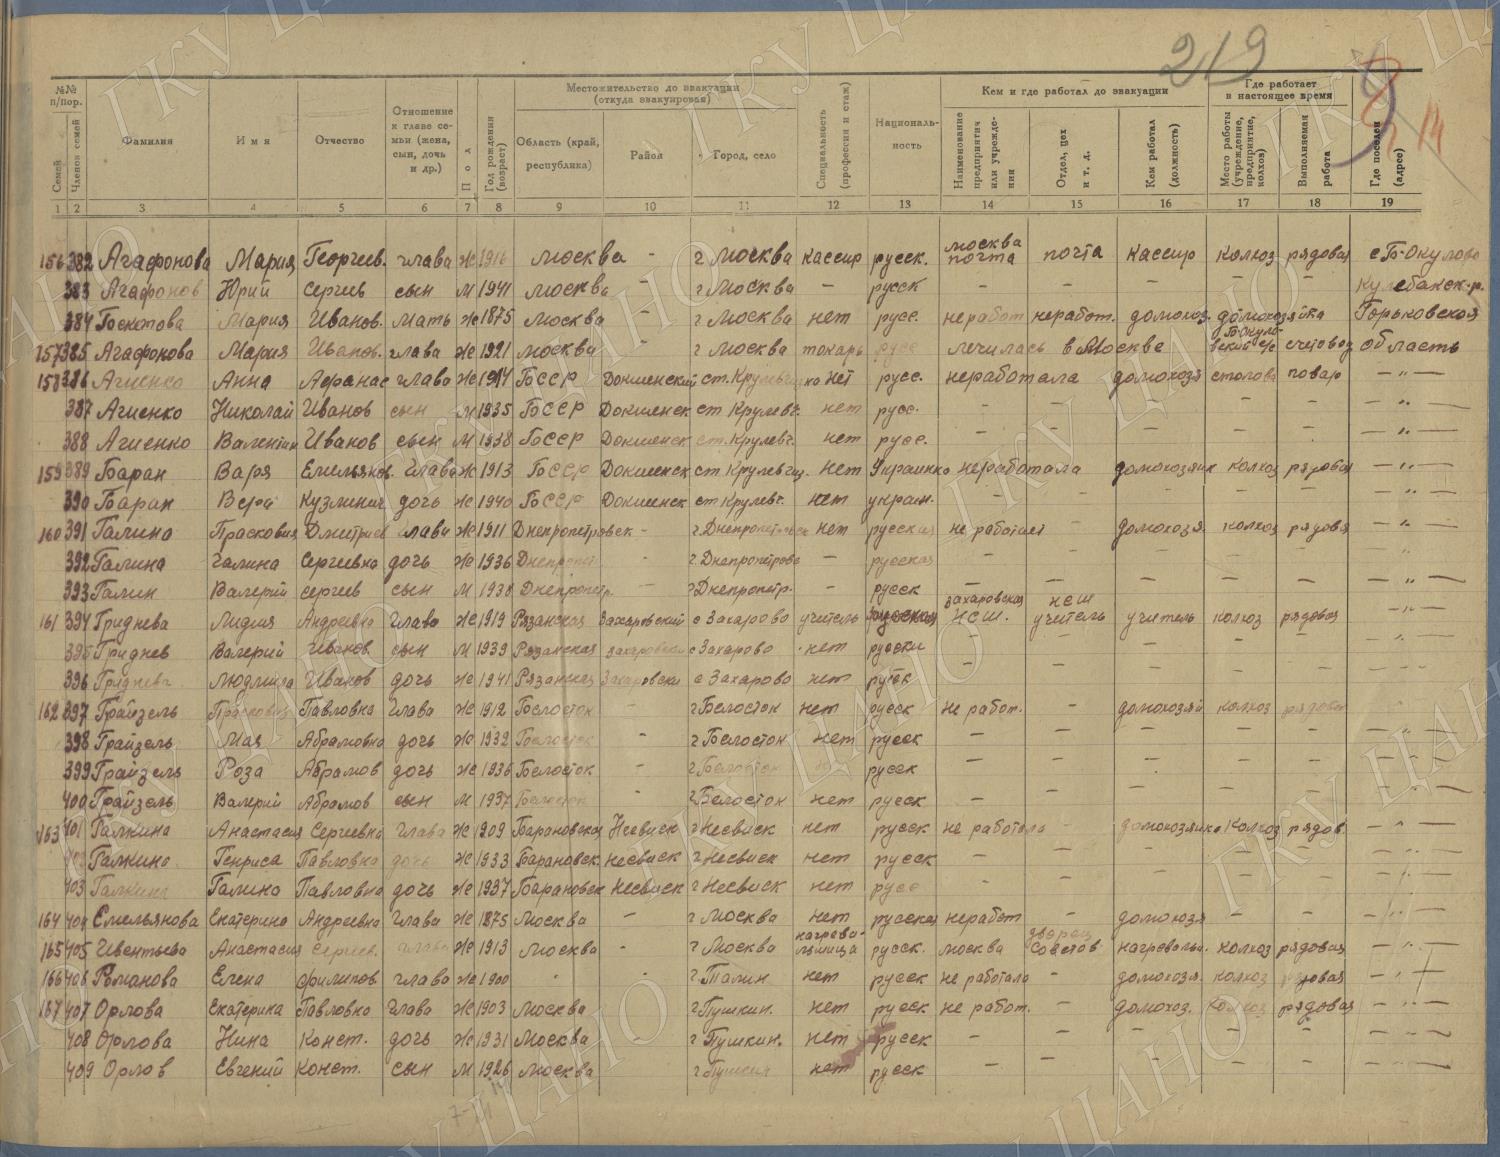 219
№№ п/пор.
Семей
Членов семей
Фамилия
Имя
Отчество
Отношение к главе семьи (жена, сын, дочь и др.)
Пол
Год рождения (возраст)
Местожительство до эвакуации (откуда эвакуирован)
Область (край, республика)
Район
Город, село
Специальность (профессия и стаж)
Националь-ность
Кем и где работал до эвакуации
Наименование предприятия или учрежде-ния
Отдел, цех и т. д.
Кем работал (должность)
Где работает в настоящее время
Место работы (учреждение, предприятие, колхоз)
Выполняемая работа
Где поселен (адрес)
1 2 3 4 5 6 7 8 9 10 11 12 13 14 15 16 17 18 19
156 382 Агафонова Мария Георгиев. глава ж 1916 Москва - г Москва кассир русск. москва почта почта кассир колхоз рядовая с Б-Окулово
383 Агафонов Юрий Сергеев сын м 1941 Москва - г Москва - русск - - - - - Кулебакск-р.
384 Мария Иванов. мать ж 1875 Москва - г Москва нет русс. неработ неработ. домохоз. домохозяйка Горьковской
157 385 Агафонова Мария Иванов. глава ж 1921 Москва - г Москва токарь русс лечилась в Москве счетовод область
386 Агиенко Анна Афанас глава ж 1914 БССР Докшенский ст. нет русс. неработала домохозя столова повар - " -
387 Агиенко Николай Иванов сын м 1935 БССР Докшенск ст Крулевч. нет русс. - - - - - - " -
388 Агиенко Валентин Иванов сын м 1938 БССР Докшенск ст. Крулевч. нет русс. - - - - - - " -
159 389 Баран Варя Емельянов. глава ж 1913 БССР Докшенск ст Крулевщ. нет Украинка неработала домохозяйк колхоз рядовая - " -
390 Баран Вера Кузминич дочь ж 1940 БССР Докшенск ст Крулевч. нет украин. - - - - - - " -
160 391 Галина Прасковия Дмитрие глава ж 1911 Днепропетровск - г Днепропетровск нет русская не работает - домохозя. колхоз рядовя - " -
392 Галина Галина Сергеевна дочь ж 1936 Днепропет - г. Днепропетрово - русская - - - - - - " -
393 Галин Валерий Сергеев сын м 1938 Днепропетр. - г Днепропетр. - русск - - - - - - " -
161 394 Гриднева Лидия Андреевна глава ж 1919 Рязанская Захаровский с Захарово учитель русская захаровская НСШ. НСШ учитель учитель колхоз рядовая - " -
395 Гриднев Валерий Иванов сын м 1939 Рязанская Захаровски с Захарово нет русски - - - - - - " -
396 Гриднева Людмила Иванов дочь ж 1941 Рязанская Захаровски с Захарово нет русск - - - - - - " -
162 397 Грайзель Прасковия Павловна глава ж 1912 Белосток - г Белосток нет русск не работ. - домохозяй колхоз рядовая - " -
398 Грайзель Мая Абрамовна дочь ж 1932 Белосток - г Белосток нет русск - - - - - - " -
399 Грайзель Роза Абрамов дочь ж 1936 Белосток - г Белосток русск - - - - - - " -
400 Грайзель Валерий Абрамов сын м 1937 Белосток - г Белосток нет русск - - - - - - " -
163 401 Галкина Анастасия Сергеевна глава ж 1909 Барановская Несвиск г Несвиск нет русск не работала - домохозяйка колхоз рядов. - " -
Галкина Генриса Павловна дочь ж 1933 Барановск. Несвиск г Несвиск нет русск - - - - - - " -
403 Галкина Галина Павловна дочь ж 1937 Барановск Несвиск г Несвиск нет русс - - - - - - " -
164 404 Емельянова Екатерина Андреевна глава ж 1875 Москва - г Москва нет русская неработ - домохозя - - - " -
165 405 Анастасия Сергеев. глава ж 1913 Москва - г Москва нагрева-льщица русск. москва дворец Советов нагревальщ. колхоз рядовая - " -
166 406 Романова Елена Филипов глава ж 1900 - - г Талин нет русск не работала - домохозя. колхоз рядовая - " -
167 407 Орлова Екатерика Павловна глава ж 1903 Москва г Пушкин. нет русск не работ. - домохоз. колхоз рядовая - " -
408 Орлова Нина Конст. дочь ж 1931 Москва г Пушкин. нет русск - - - - - - " -
409 Орлов Евгений Конст. сын м 1926 Москва г Пушкин нет русск - - - - - - " -
ГКУ ЦАНО